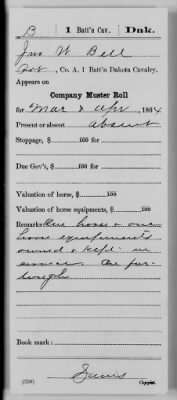 B 1 Batt'n Cav. Dak.
Jno W. Bell
Pvt, Co. A, 1 Batt'n Dakota Cavalry.
Appears on
Company Muster Roll
for Mar & Apr, 1864
Present or absent Absent
Stoppage, $ 100 for
Due Gov't, $ 100 for
Valuation of horse, $ 100
Valuation of horse equipments, $ 100
Remarks: One horse & one
horse equipments
owned & kept in
service. On fur-
lough
Book mark:
(358) Copyist.